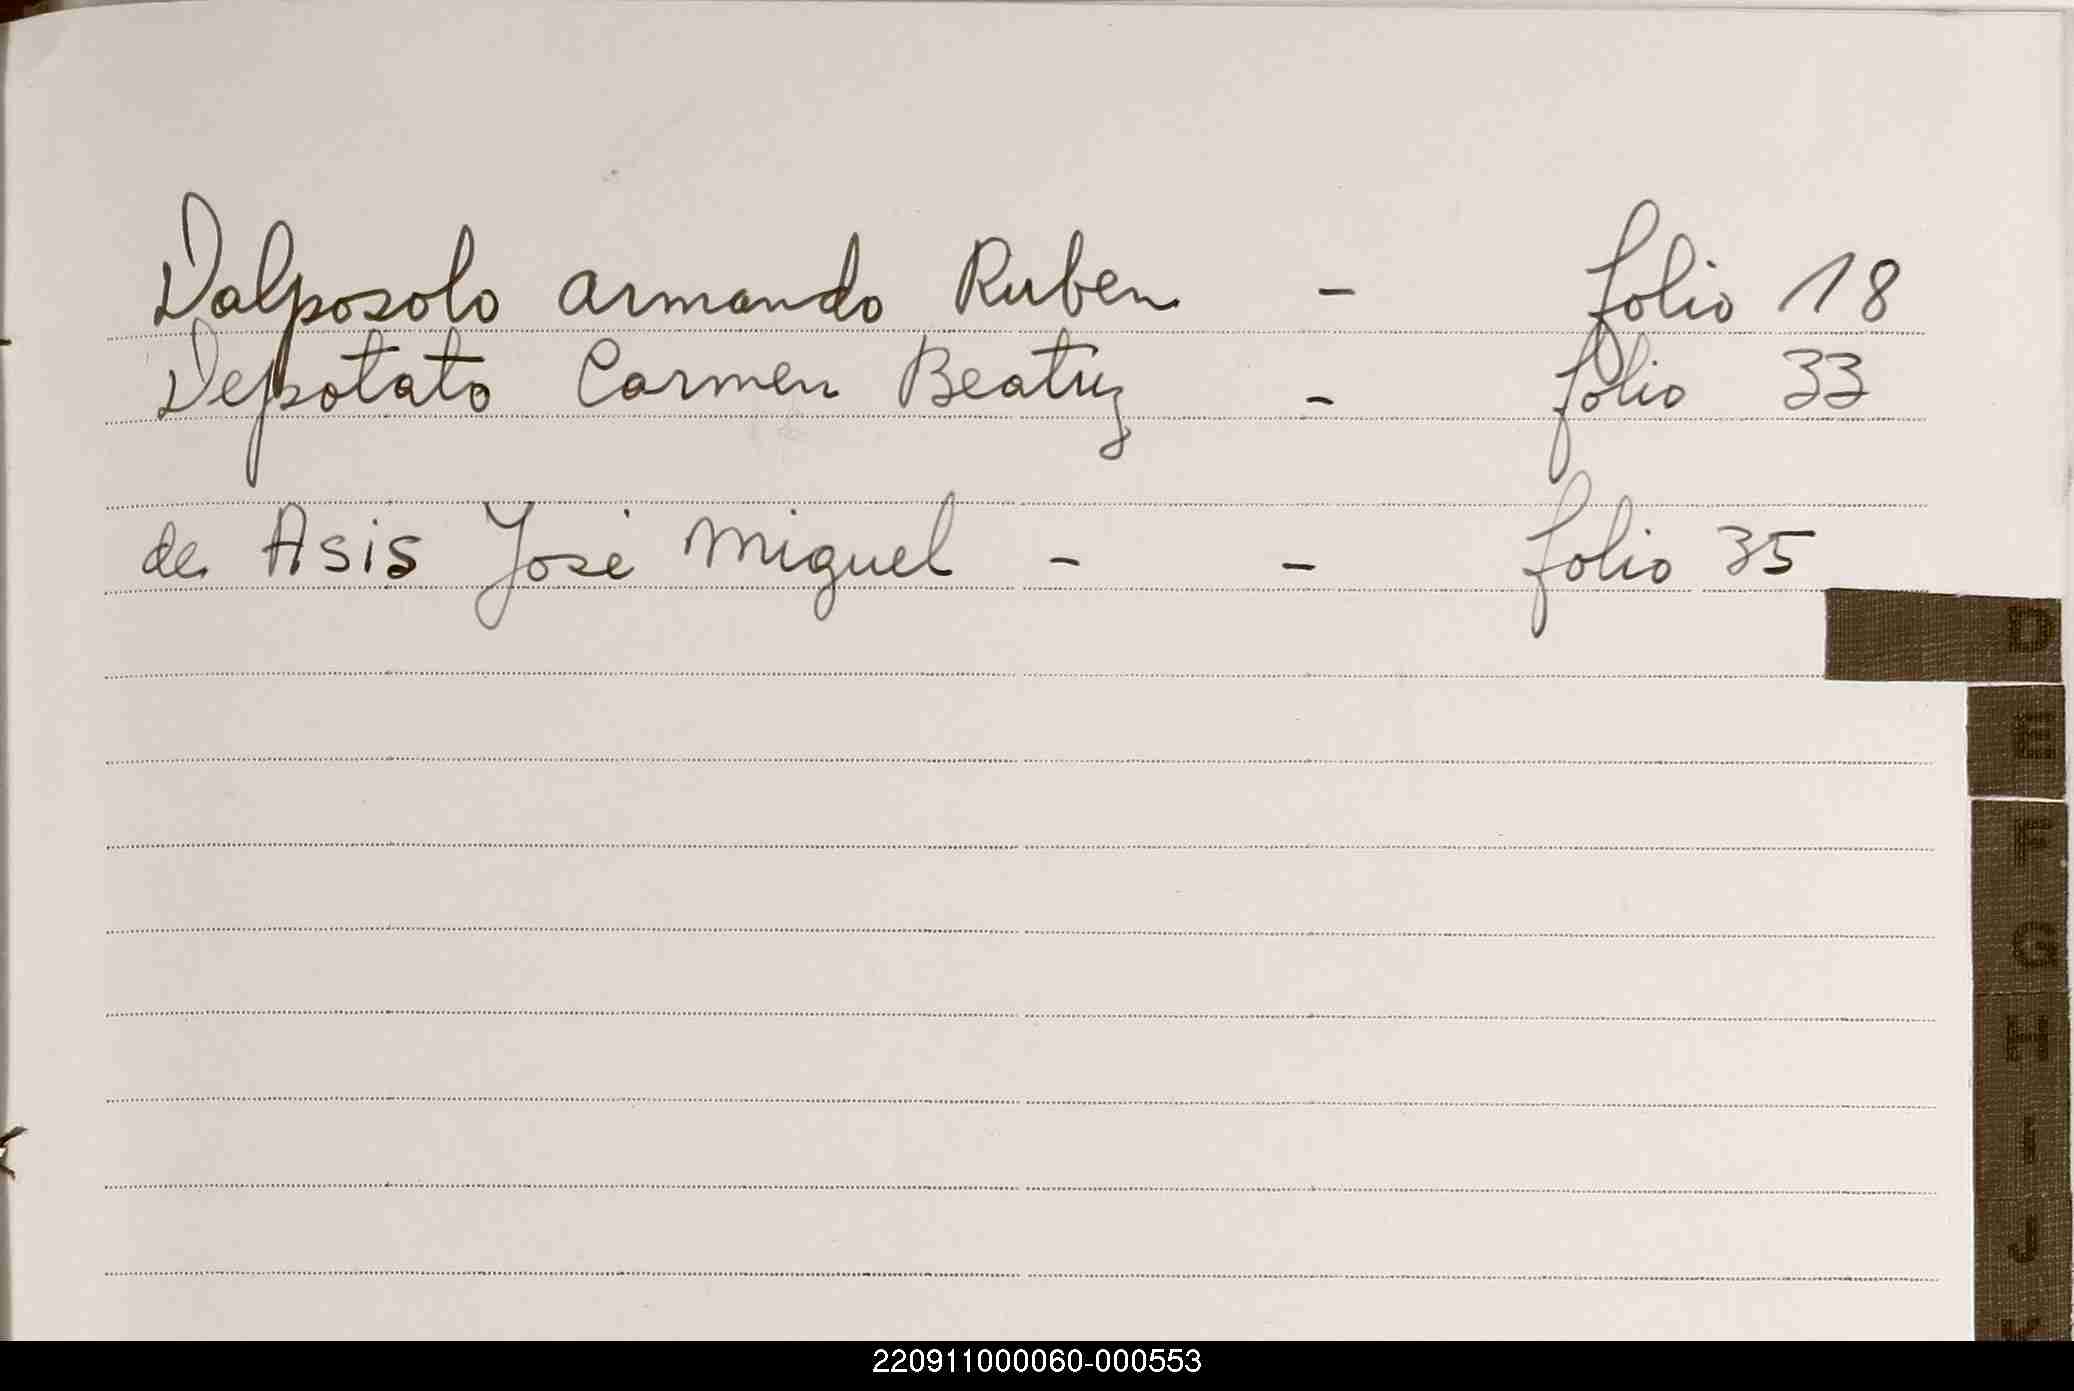 Dalposolo Armando Ruben - folio 18
Depotato Carmen Beatriz - folio 33
de Asis José Miguel - - folio 35
D
E
F
G
H
I
J
K
220911000060-000553